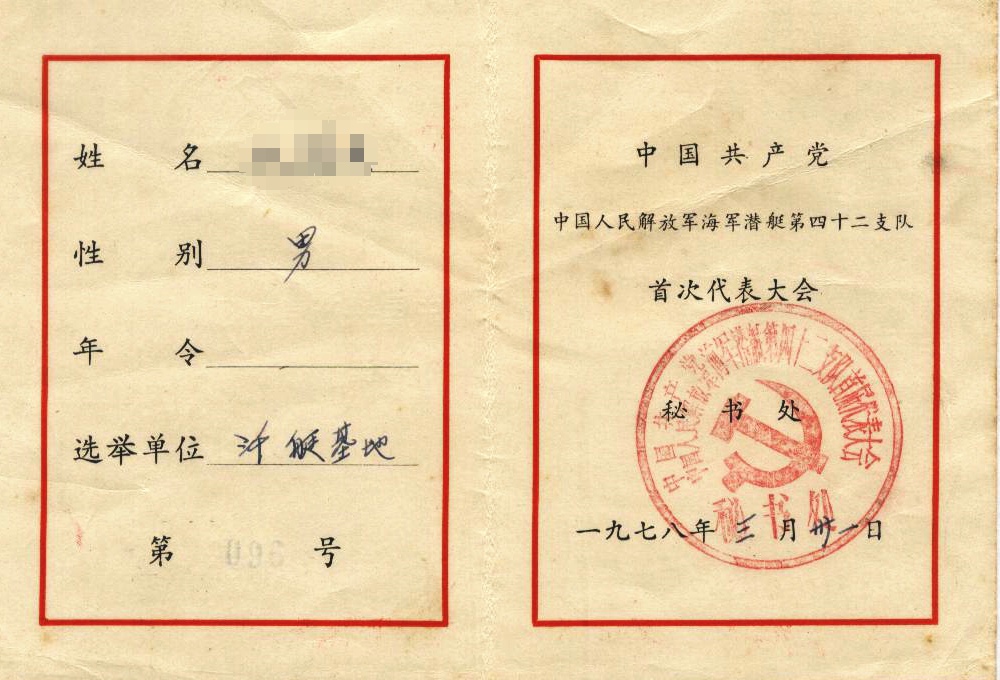 姓 名
性 别 男
年 令
选举单位 艇基地
第 号
中国共产党
中国人民解放军海军潜艇第四十二支队
首次代表大会
秘书处
一九七八年三月卅一日
中国共产党
中国人民解放军海军潜艇第四十二支队首届代表大会
秘书处